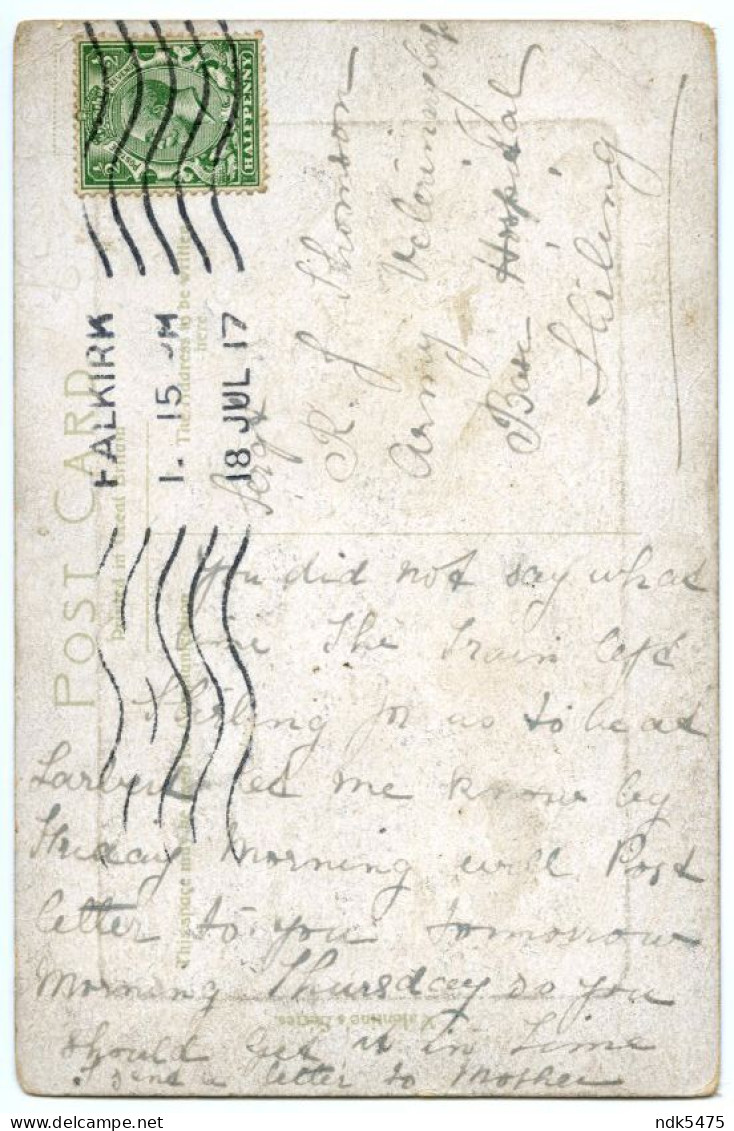 POST CARD
The Address to be written
here.
HALFPENNY
FALKIRK
1. 15 PM
18 JUL 17
Sergt
R. J. Thomson
Army Veterinary
Base Hospital
Stirling
You did not say what
time The Train left
Stirling for us to be at
Larbert let me know by
Friday Morning will Post
letter to you tomorrow
Morning Thursday so you
should get it in Time
I send a letter to Mother
Valentine's Series
ndk5475